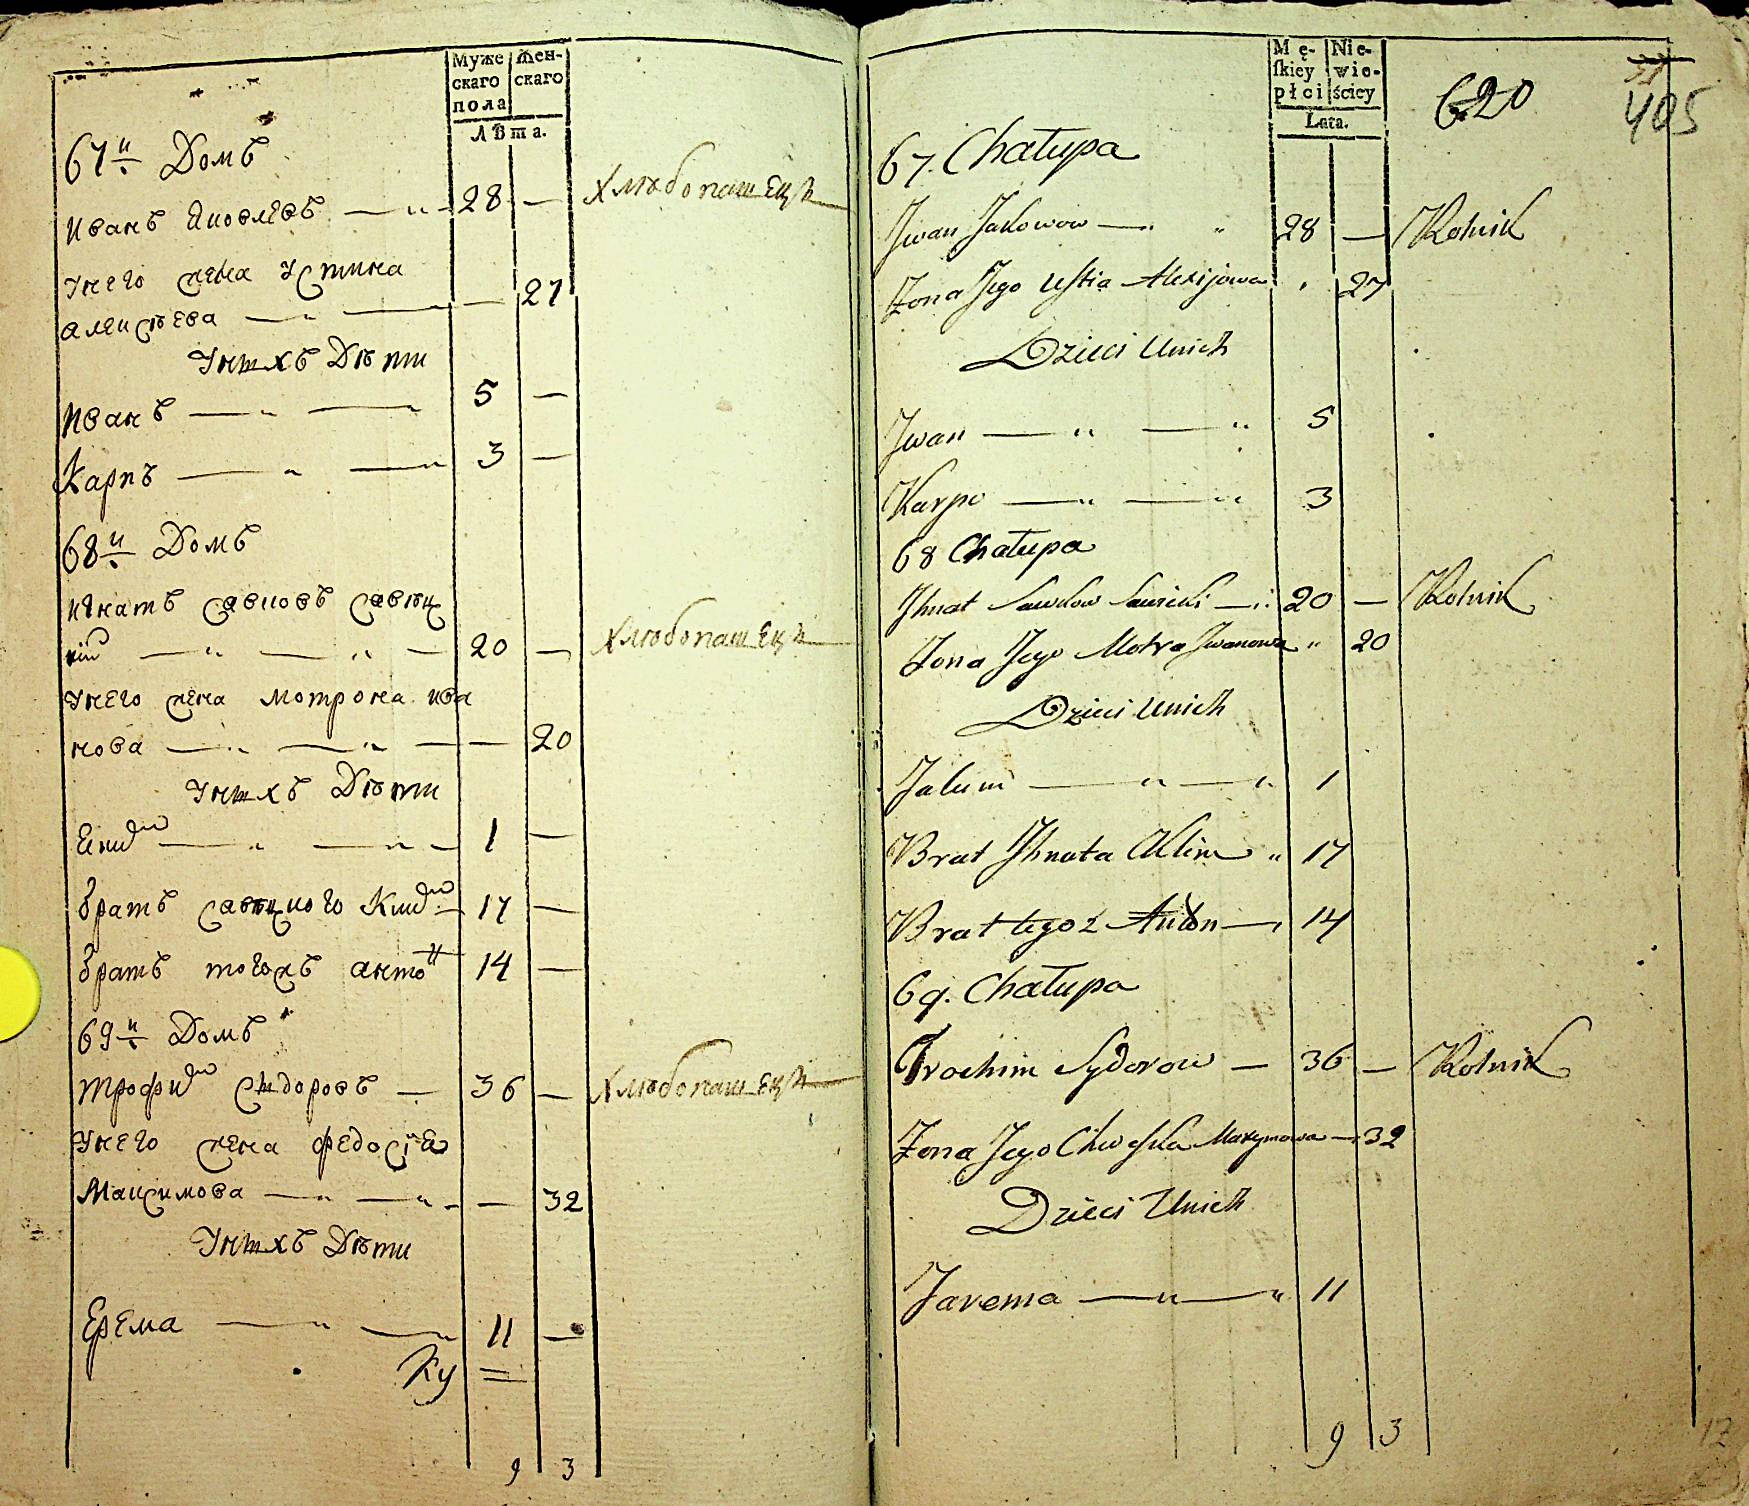 Муже
скаго
пола
Жен-
скаго
Лѣта.
67й Домъ
Иванъ Яковлевъ 28 — хлѣбопашецъ
Унего жена Устина
алексѣева — 27
Унихъ Дѣти
Иванъ 5 —
Карпъ 3 —
68й Домъ
Игнатъ Савковъ Савиц
кій 20 — хлѣбопашецъ
Унего жена Мотрона ива
нова — 20
Унихъ Дѣти
1 —
братъ Савицкого Клим 17 —
братъ тогожъ антон 14 —
69й Домъ
трофим Сидоровъ — 36 — хлѣбопашецъ
Унего жена федосія
Максимова — 32
Унихъ Дѣти
Ерема 11 —
9 3
Mę-
ſkiey
płci
Nie-
wie-
ściey
Lata.
620
405
67. Chałupa
Jwan Jakowow 28 — Rolnik
Żona Jego Ustia Alexijowa 27
Dzieci Unich
Jwan 5
Karpo 3
68 Chałupa
Jhnat Sawkow Sawicki 20 — Rolnik
Żona Jego Motra Jwanowa 20
Dzieci Unich
Jakim 1
Brat Jhnata Klim 17
Brat tegoż Anton 14
69. Chałupa
Trochim Sydorow — 36 — Rolnik
Żona Jego Chweśka Maxymowa — 32
Dzieci Unich
Jarema 11
9 3